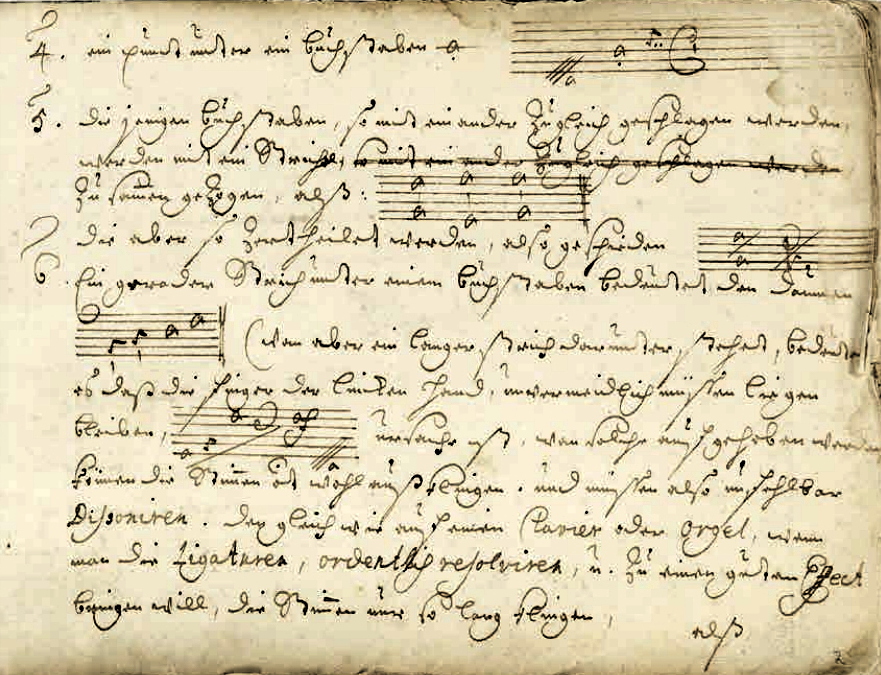 4. ein punct unter ein buchstaben a
5. die jenigen buchstaben, so mit ein ander zugleich geschlagen werden,
werden mit ein Strichl, so mit ein ander zugleich geschlagen werden
zu samen gezogen, alß:
die aber so zertheilet werden, also geschieden
6. Ein gerader Strich unter einem buchstaben bedeutet den Daumen
(wan aber ein langer strich darunter, stehet, bedeute
es daß die finger der lincken hand, unvermeidlich müssen ligen
bleiben, ursach ist, wan solche aufgehoben werden
können die Stimen nit wohl außklingen. und müssen also unfehlbar
Disponiren. den gleich wie auf einen Clavier oder Orgel, wenn
man die Ligaturen, ordentlich resolviren, u. zu einen guten Effect
bringen will, die Stimen nur so lang klingen,
alß